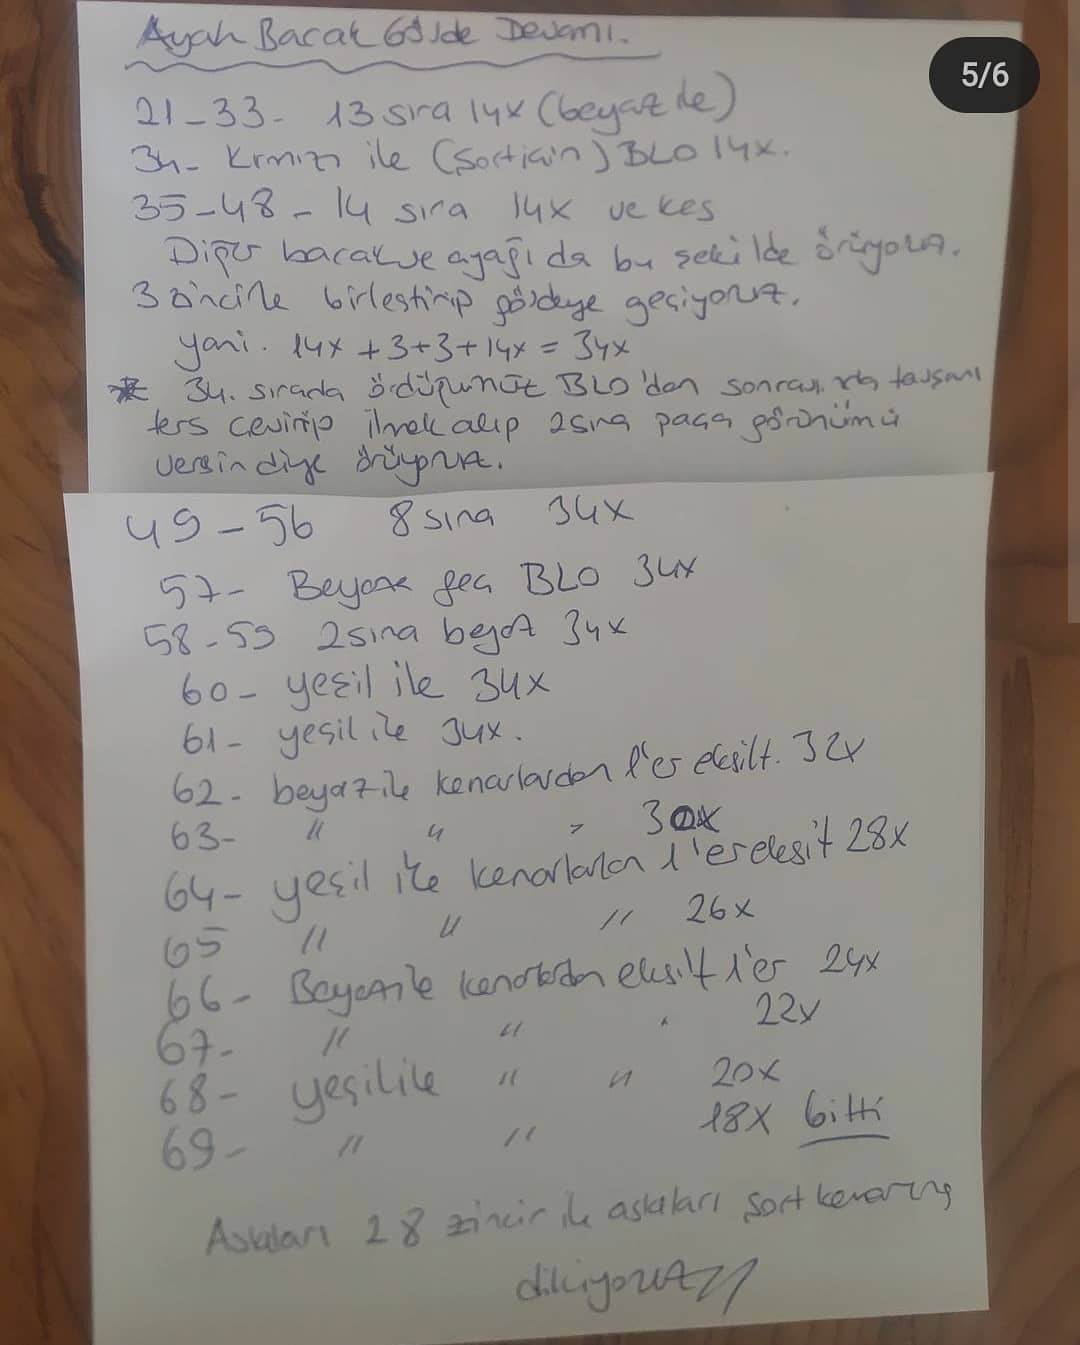 Ayak Bacak Gövde Devamı.
5/6
21-33- 13 sıra 14x (beyaz ile)
34- Kırmızı ile (Şort için) BLO 14x.
35-48- 14 sıra 14x ve kes
Diğer bacak ve ayağı da bu şekilde örüyoruz.
3 zincirle birleştirip gövdeye geçiyoruz.
yani. 14x + 3+3+14x = 34x
* 34. sırada ördüğümüz BLO'dan sonra tavşanı
ters çevirip ilmek alıp 2 sıra paça görünümü
versin diye örüyoruz.
49-56 8 sıra 34x
57- Beyaza geç BLO 34x
58-59 2 sıra beyaz 34x
60- yeşil ile 34x
61- yeşil ile 34x.
62- beyaz ile kenarlardan 1'er eksilt. 32x
63- " " " 30x
64- yeşil ile kenarlardan 1'er eksilt 28x
65 " " " 26x
66- Beyaz ile kenarlardan eksilt 1'er 24x
67- " " " 22x
68- yeşil ile " " 20x
69- " " 18x bitti
Askıları 28 zincir ile askıları şort kenarına
dikiyoruz